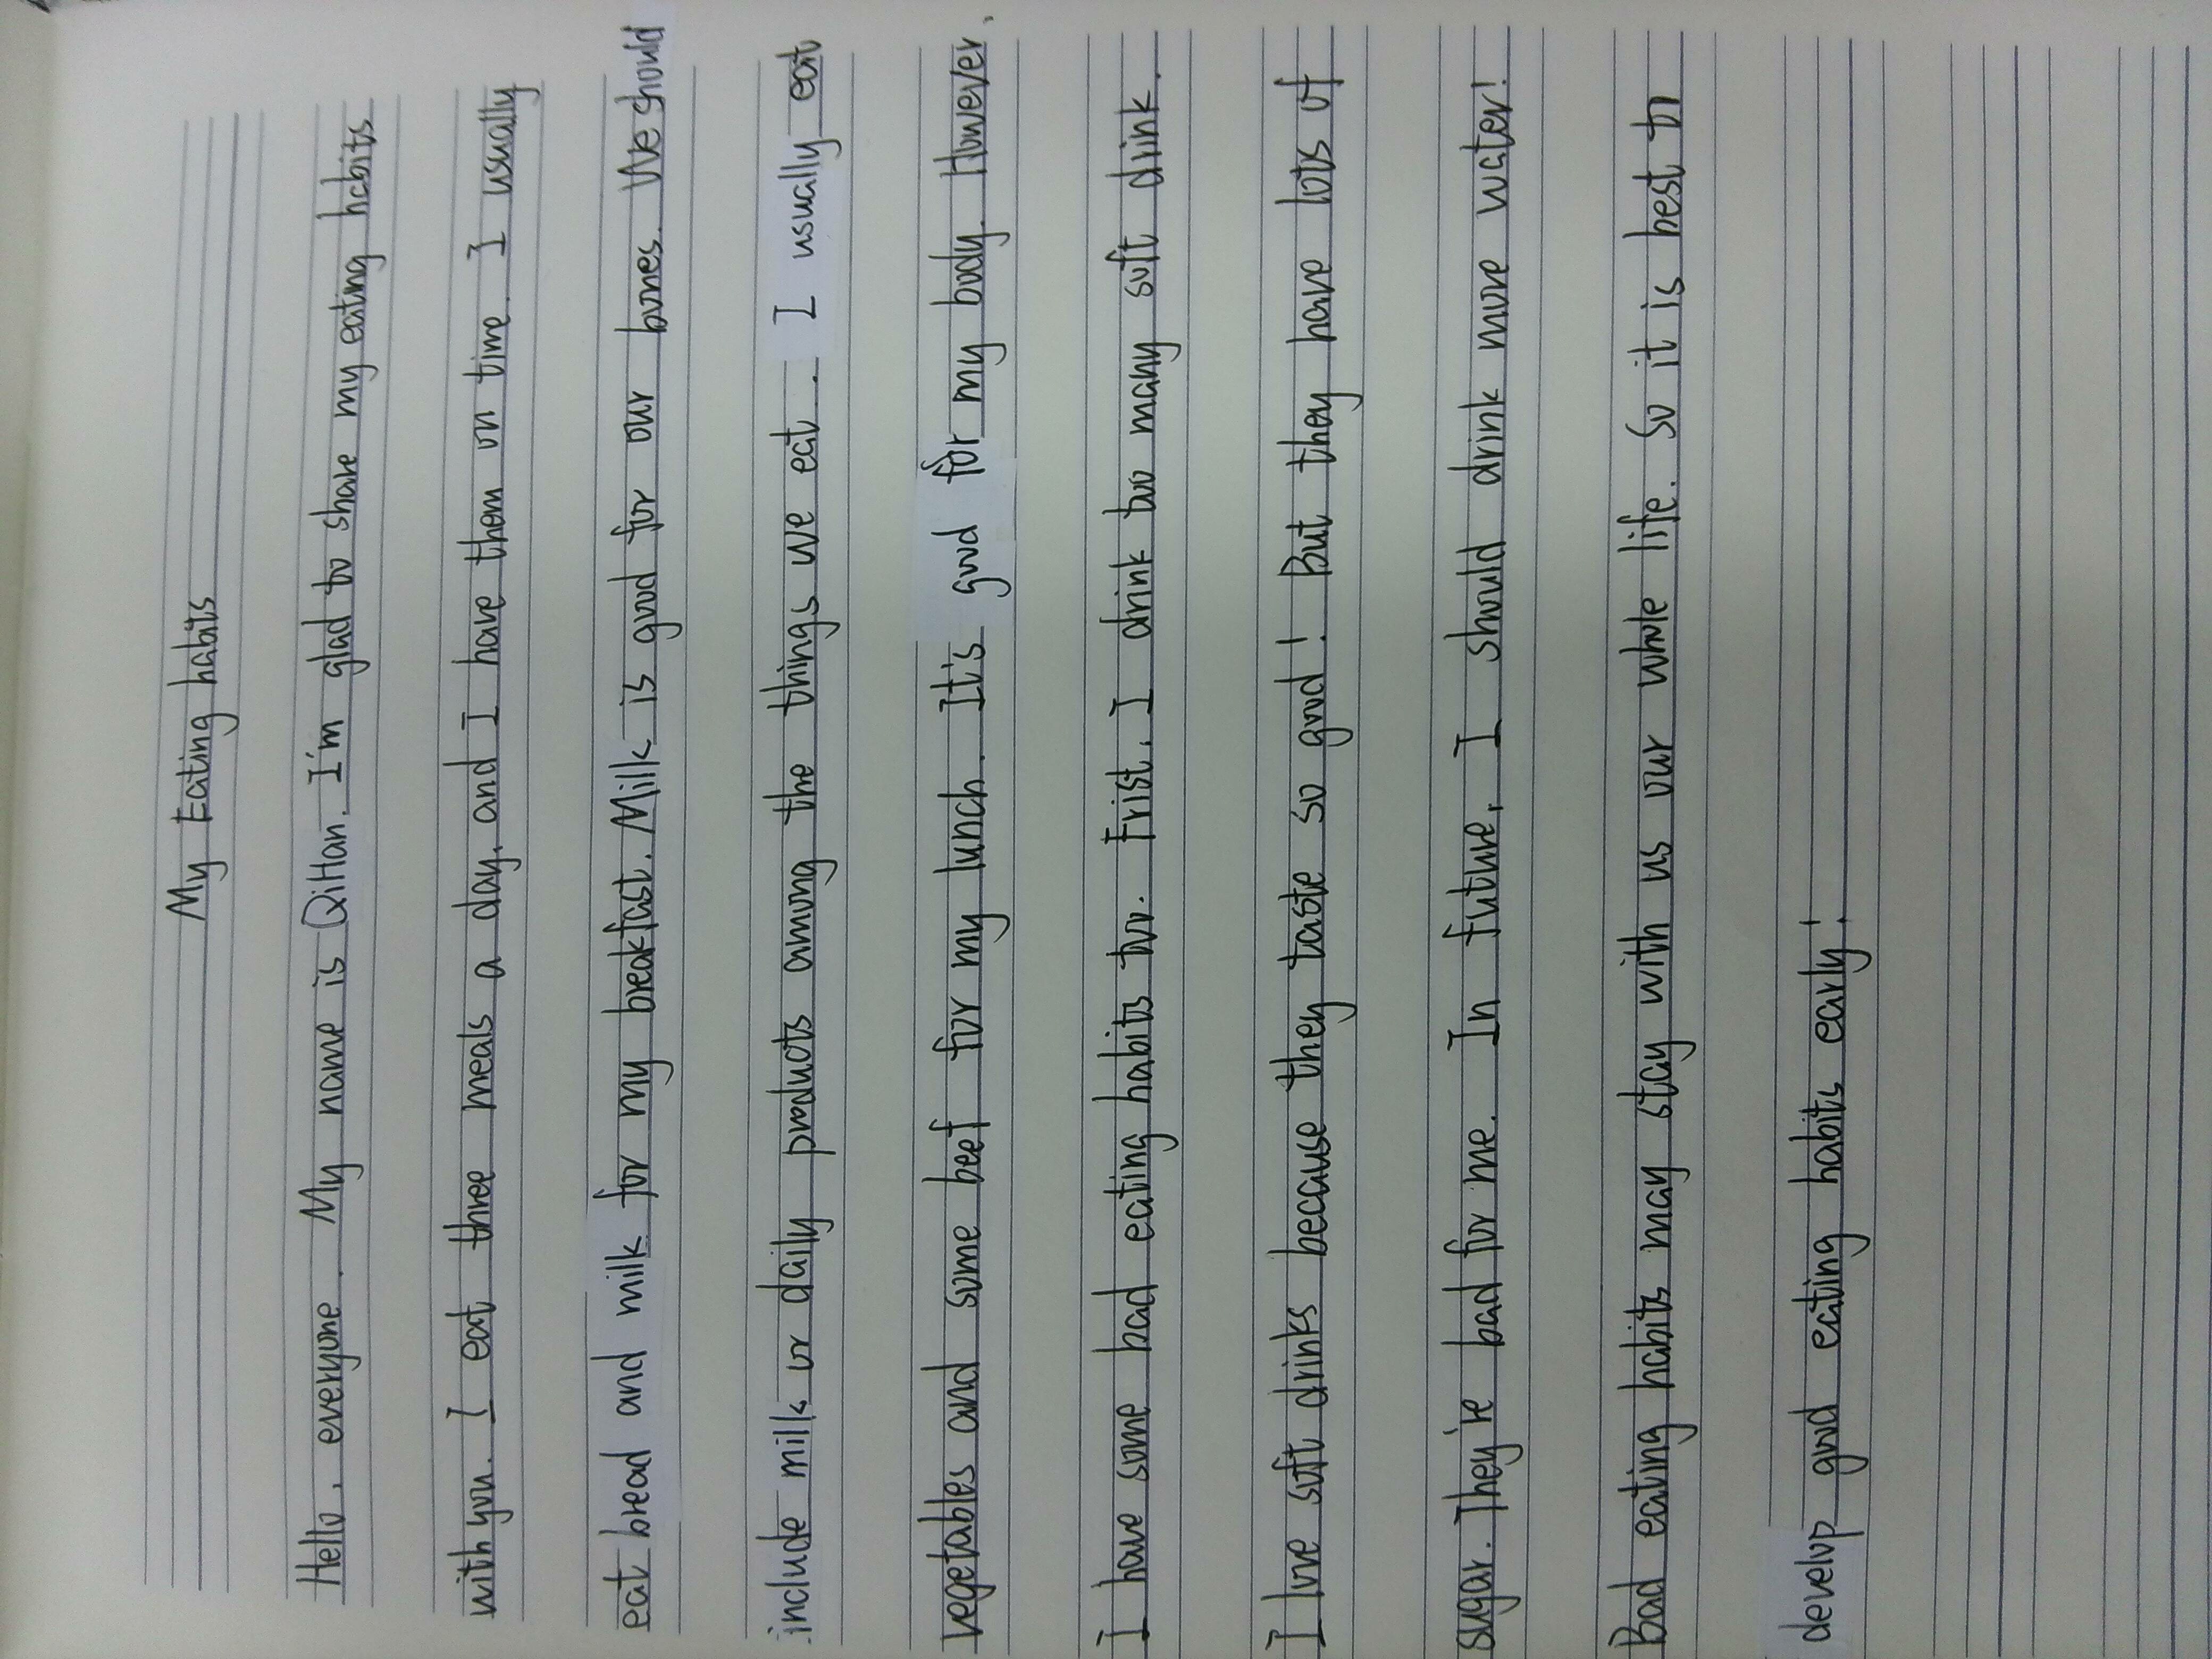 My Eating habits
Hello, everyone. My name is QiHan. I'm glad to share my eating habits
with you. I eat three meals a day, and I have them on time. I usually
eat bread and milk for my breakfast. Milk is good for our bones. We should
include milk or daily products among the things we eat. I usually eat
vegetables and some beef for my lunch. It's good for my body. However,
I have some bad eating habits too. Frist, I drink too many soft drink.
I love soft drinks because they taste so good! But they have lots of
sugar. They're bad for me. In future, I should drink more water!
Bad eating habits may stay with us our whole life. So it is best to
develop good eating habits early!